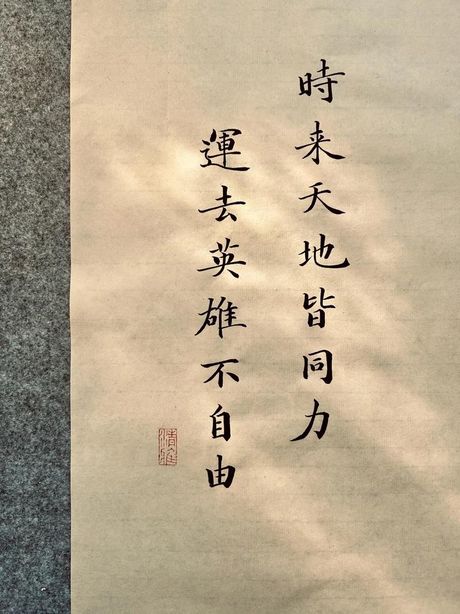 時来天地皆同力
運去英雄不自由